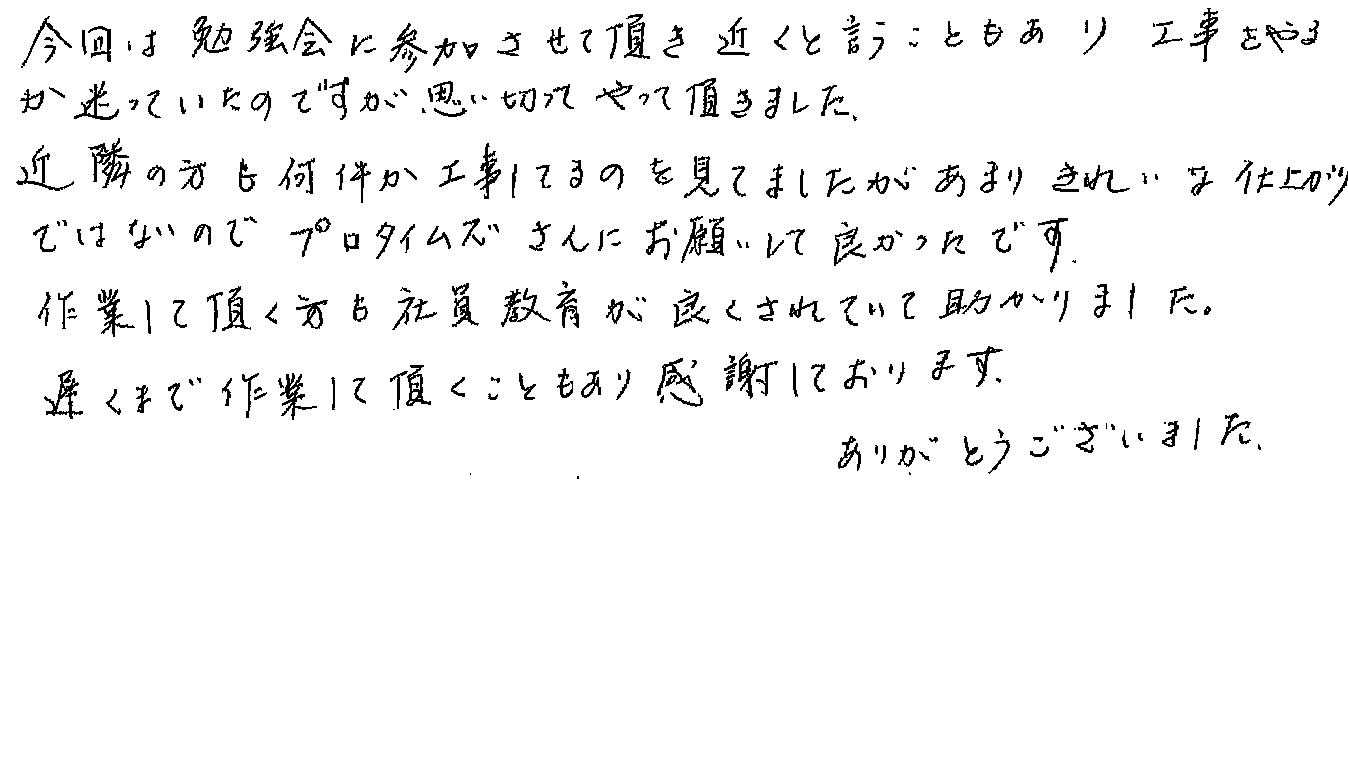 今回は勉強会に参加させて頂き近くと言うこともあり工事をやる
か迷っていたのですが、思い切ってやって頂きました。
近隣の方も何件か工事してるのを見てましたがあまりきれいな仕上がり
ではないのでプロタイムズさんにお願いして良かったです。
作業して頂く方も社員教育が良くされていて助かりました。
遅くまで作業して頂くこともあり感謝しております。
ありがとうございました。